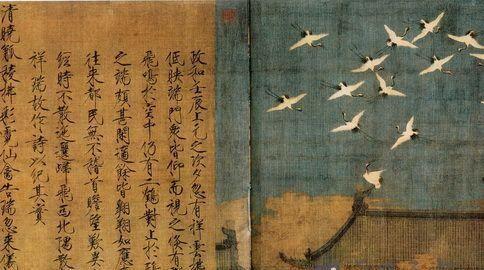 政和壬辰上元之次夕忽有祥雲
低映端門衆皆仰而視之倏有
飛鳴於空中仍有二鶴對止於
之端頗甚閑適餘皆翱翔如應
往來都民無不稽首瞻望歎異
經時不散迤邐歸飛西北隅散
祥瑞故作詩以紀其實
清曉觚稜拂彩霓仙禽告瑞忽來儀